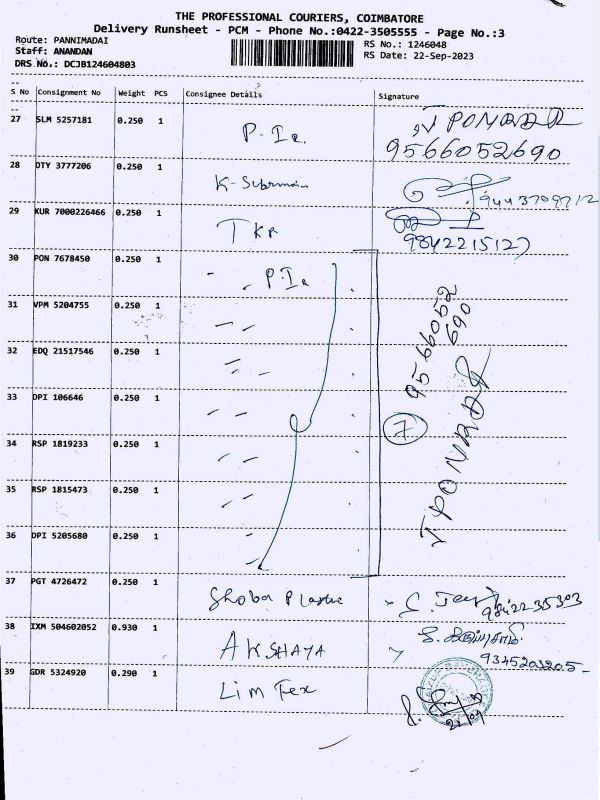 THE PROFESSIONAL COURIERS, COIMBATORE
Delivery Runsheet - PCM - Phone No.:0422-3505555 - Page No.:3
Route: PANNIMADAI
RS No.: 1246048
Staff: ANANDAN
RS Date: 22-Sep-2023
DRS No.: DCJB124604803
S No Consignment No Weight PCS Consignee Details Signature
27 SLM 5257181 0.250 1 P. Ie. J PONRAJ
9566052690
28 DTY 3777206 0.250 1 K-Subrmani 9443709712
29 KUR 7000226466 0.250 1 TKP
9842215127
30 PON 7678450 0.250 1 P Ie
31 VPM 5204755 0.250 1
32 EDQ 21517546 0.250 1
33 DPI 106646 0.250 1
34 RSP 1819233 0.250 1
35 RSP 1815473 0.250 1
36 DPI 5205680 0.250 1
7
9566052
690
J PONRAJ
37 PGT 4726472 0.250 1 Shoba Plastic
9842235303
38 IXM 504602052 0.930 1 AKSHAYA
9345203205-
39 GDR 5324920 0.290 1 Lim Tex